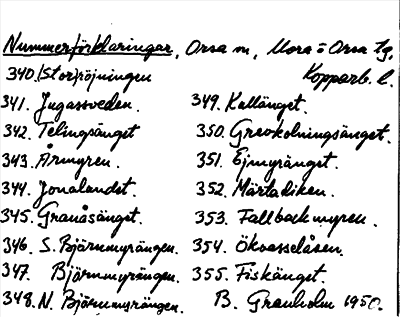 Nummerförklaringar, Orsa sn, Mora o Orsa tg,
Kopparb. l.
340. (Stor)röjningen
341. Jugassveden.
342. Telingsänget
343. Årmyren.
344. Jonalandet.
345. Granåsänget.
346. S. Björnmyrängen.
347. Björnmyrängen.
348. N. Björnmyrängen.
349. Kallänget.
350. Grevkolningsänget.
351. Ejmyränget.
352. Märtadiken.
353. Fallbackmyren.
354. Ökvasselåsen.
355. Fiskänget.
B. Granholm 1950.